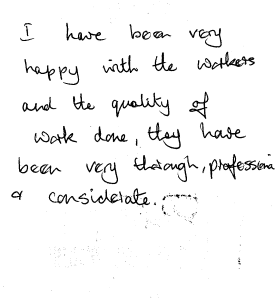 I have been very
happy with the workers
and the quality of
work done, they have
been very thorough, professiona
& considerate.